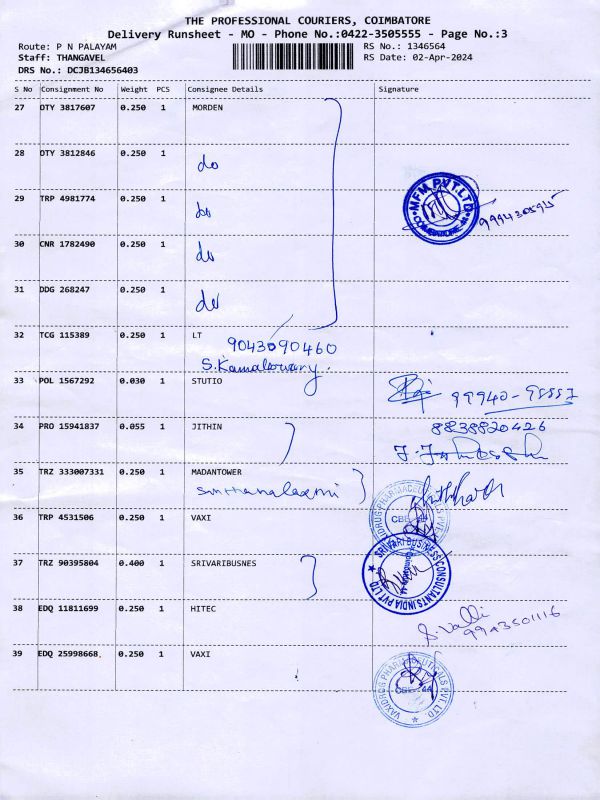 THE PROFESSIONAL COURIERS, COIMBATORE
Delivery Runsheet - MO - Phone No.:0422-3505555 - Page No.:3
Route: P N PALAYAM RS No.: 1346564
Staff: THANGAVEL RS Date: 02-Apr-2024
DRS No.: DCJB134656403
S No Consignment No Weight PCS Consignee Details Signature
27 DTY 3817607 0.250 1 MORDEN
28 DTY 3812846 0.250 1
do
29 TRP 4981774 0.250 1
do
MFM PVT.LTD
COIMBATORE-44
30 CNR 1782490 0.250 1
do
31 DDG 268247 0.250 1
do
32 TCG 115389 0.250 1 LT
9043090460
33 POL 1567292 0.030 1 STUTIO
34 PRO 15941837 0.055 1 JITHIN
8838820426
35 TRZ 333007331 0.250 1 MADANTOWER
36 TRP 4531506 0.250 1 VAXI
VAXIDRUG PHARMACEUTICALS PVT.
CBE-44
37 TRZ 90395804 0.400 1 SRIVARIBUSNES
SRIVARI BUSINESS CONSULTANTS INDIA PVT LTD
38 EDQ 11811699 0.250 1 HITEC
S. Valli
9943501116
39 EDQ 25998668 0.250 1 VAXI
VAXIDRUG PHARMACEUTICALS PVT.LTD.
CBE-44